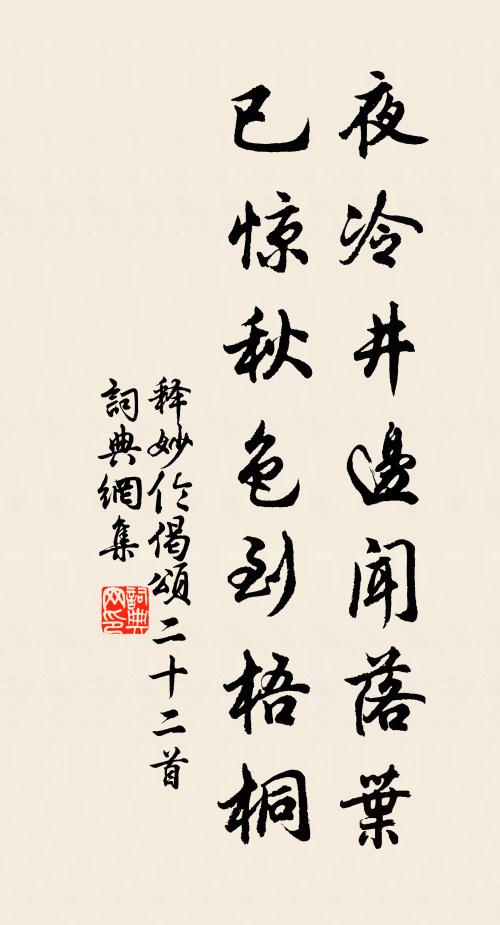 夜冷井邊闻落葉
已惊秋色到梧桐
释妙伦偈頌二十二首
詞典網集
詞典网印